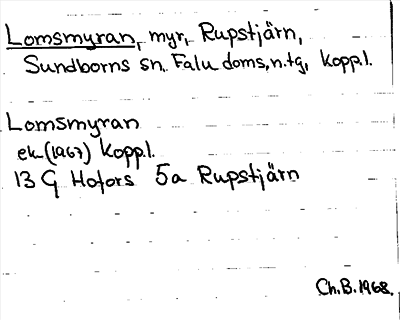 Lomsmyran, myr, Rupstjärn,
Sundborns sn. Falu doms. n. tg, Koppl.
Lomsmyran
ek (1967) Koppl.
13 G Hofors 5a Rupstjärn
Ch. B. 1968.